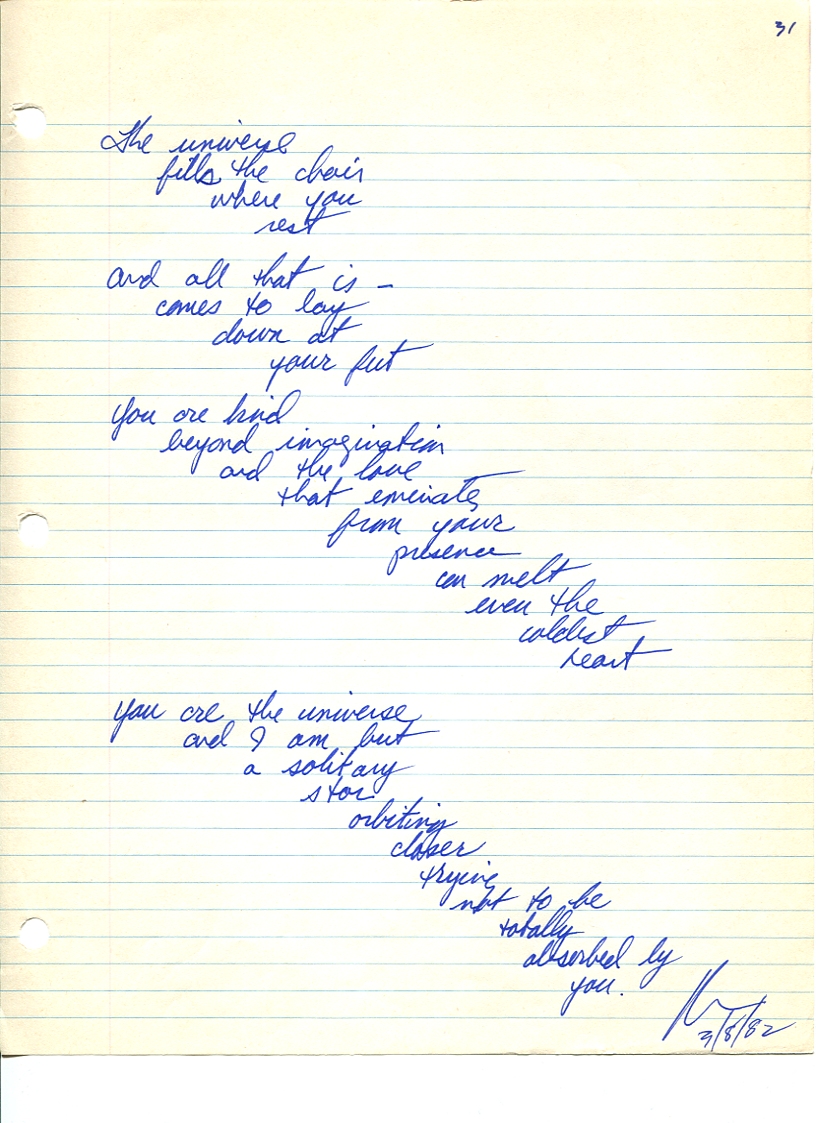 31
The universe
fills the chair
where you
rest
and all that is -
comes to lay
down at
your feet
you are kind
beyond imagination
and the love
that eminates
from your
presence
can melt
even the
coldest
heart
you are the universe
and I am but
a solitary
star
orbiting
closer
trying
not to be
totally
absorbed by
you.
3/8/82